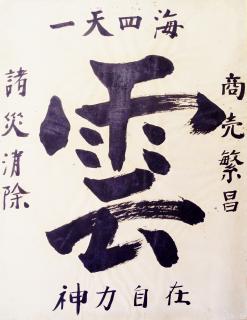 一天四海
商売繁昌
雲
諸災消除
神力自在